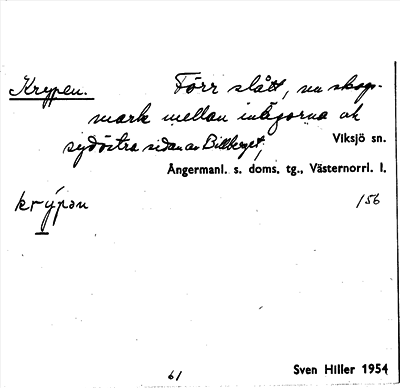 Krypen. Förr slått, nu skogs-
mark mellan inägorna och
sydöstra sidan av Billberget,
Viksjö sn.
Ångermanl. s. doms. tg., Västernorrl. l.
krýpən /56
61
Sven Hiller 1954